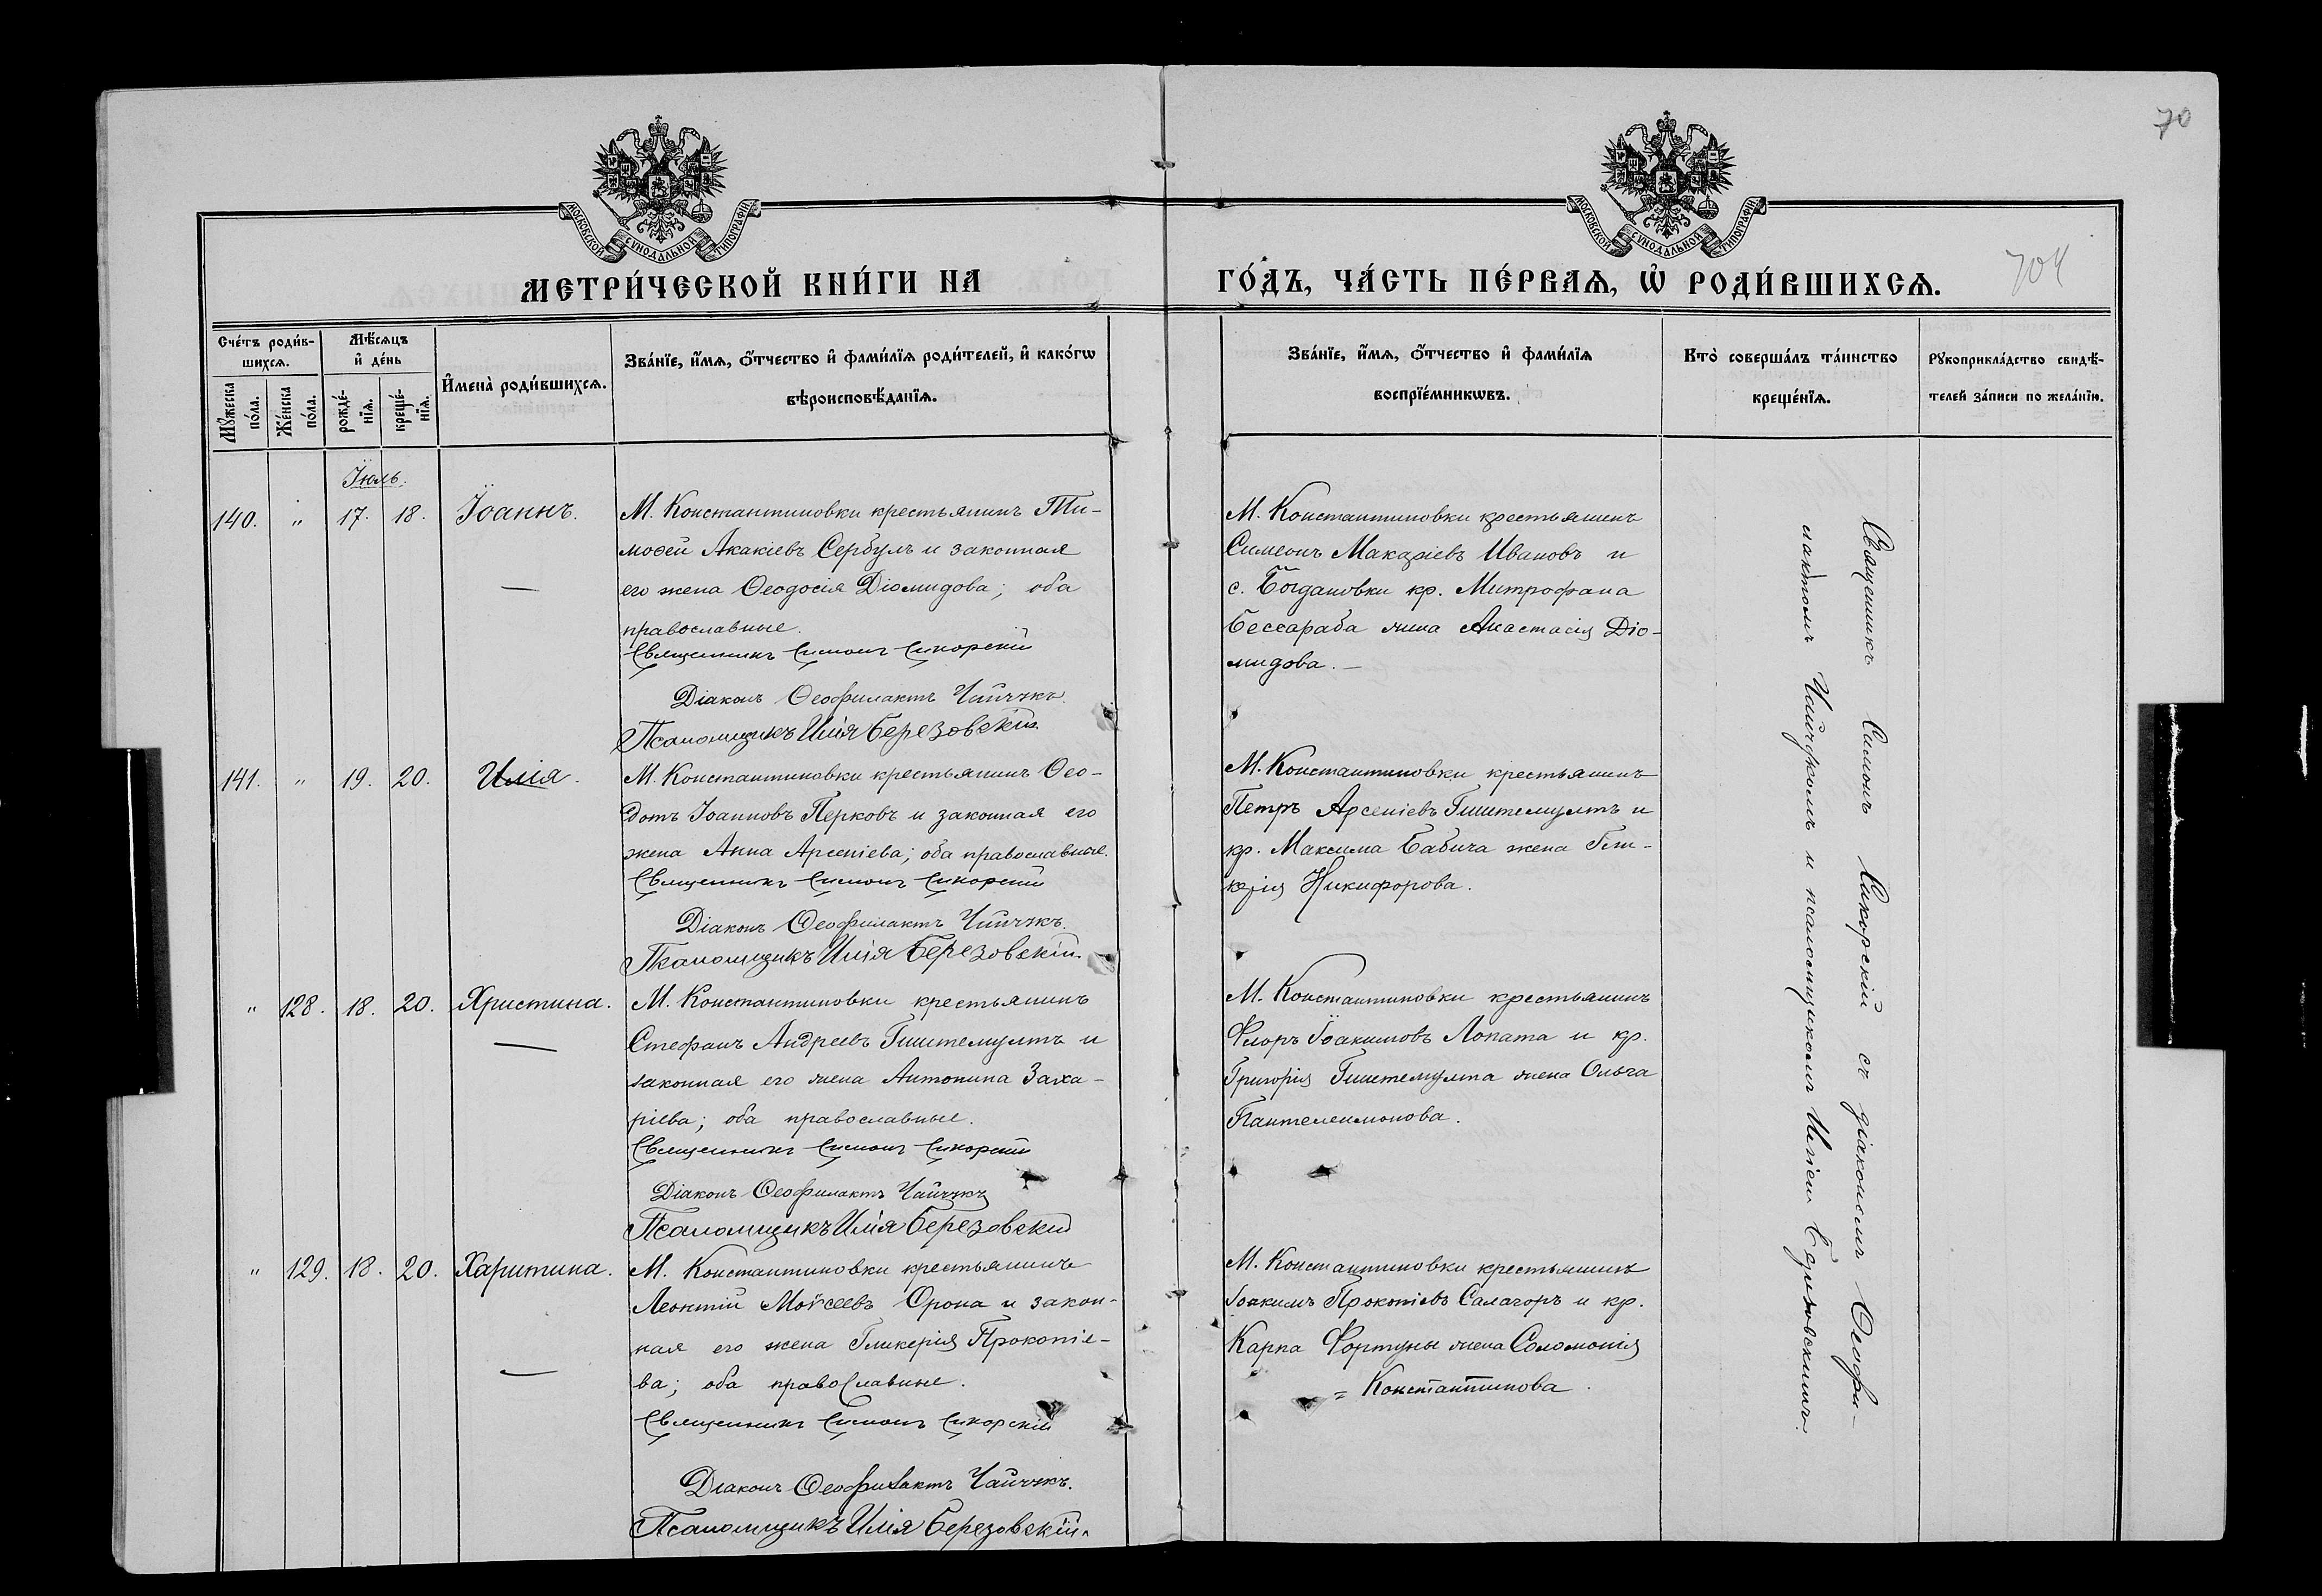 70
МОСКОВСКОЙ СУНОДАЛЬНОЙ ТИПОГРАФІИ
МОСКОВСКОЙ СУНОДАЛЬНОЙ ТИПОГРАФІИ
МЕТРИ́ЧЕСКОЙ КНИ́ГИ НА
ГО́ДЪ, ЧА́СТЬ ПЕ́РВАѦ, Ѡ҆ РОДИ́ВШИХСѦ.
704
Сче́тъ роди́в-
шихсѧ.
Мꙋ́жеска
по́ла.
Же́нска
по́ла.
Мѣ́сѧцъ
и҆ де́нь
рожде́-
нїѧ.
креще́-
нїѧ.
И҆мена̀ роди́вшихсѧ.
Зва́нїе, и҆́мѧ, ѻ҆́тчество и҆ фами́лїѧ роди́телей, и҆ како́гѡ
вѣроисповѣ́данїѧ.
Зва́нїе, и҆́мѧ, ѻ҆́тчество и҆ фами́лїѧ
воспрїе́мникѡвъ.
Кто̀ соверша́лъ та́инство
креще́нїѧ.
Рꙋкоприкла́дство свидѣ́-
телей за́писи по жела́нїю.
Іюль.
140. " 17. 18. Іоаннъ.
М. Константиновки крестьянинъ Ти-
моѳей Акакіевъ Сербулъ и законная
его жена Ѳеодосія Діомидова; оба
православные.
Священникъ Симонъ Сикорскій
Діаконъ Ѳеофилактъ Чайчукъ.
Псаломщикъ Илія Березовскій.
М. Константиновки крестьянинъ
Симеонъ Макаріевъ Ивановъ и
с. Богдановки кр. Митрофана
Бессараба жена Анастасія Діо-
мидова. —
141. " 19. 20. Илія.
М. Константиновки крестьянинъ Ѳео-
дотъ Іоанновъ Перковъ и законная его
жена Анна Арсеніева; оба православные.
Священникъ Симонъ Сикорскій
Діаконъ Ѳеофилактъ Чайчукъ.
Псаломщикъ Илія Березовскій.
М. Константиновки крестьянинъ
Петръ Арсеніевъ Гиштемултъ и
кр. Максима Бабича жена Гли-
керія Никифорова.
" 128. 18. 20. Христина.
М. Константиновки крестьянинъ
Стефанъ Андреевъ Гиштемултъ и
законная его жена Антонина Заха-
ріева; оба православные.
Священникъ Симонъ Сикорскій
Діаконъ Ѳеофилактъ Чайчукъ
Псаломщикъ Илія Березовскій
М. Константиновки крестьянинъ
Флоръ Іоакимовъ Лопата и кр.
Григорія Гиштемулта жена Ольга
Пантелеимонова.
" 129. 18. 20. Харитина.
М. Константиновки крестьянинъ
Леонтій Моѵсеевъ Орона и закон-
ная его жена Гликерія Прокопіе-
ва; оба православные.
Священникъ Симонъ Сикорскій
Діаконъ Ѳеофилактъ Чайчукъ.
Псаломщикъ Илія Березовскій.
М. Константиновки крестьянинъ
Іоакимъ Прокопіевъ Салагоръ и кр.
Карпа Фортуны жена Соломонія
= Константинова.
Священникъ Симонъ Сикорскій съ діакономъ Ѳеофи-
лактомъ Чайчукомъ и псаломщикомъ Иліею Березовскимъ.